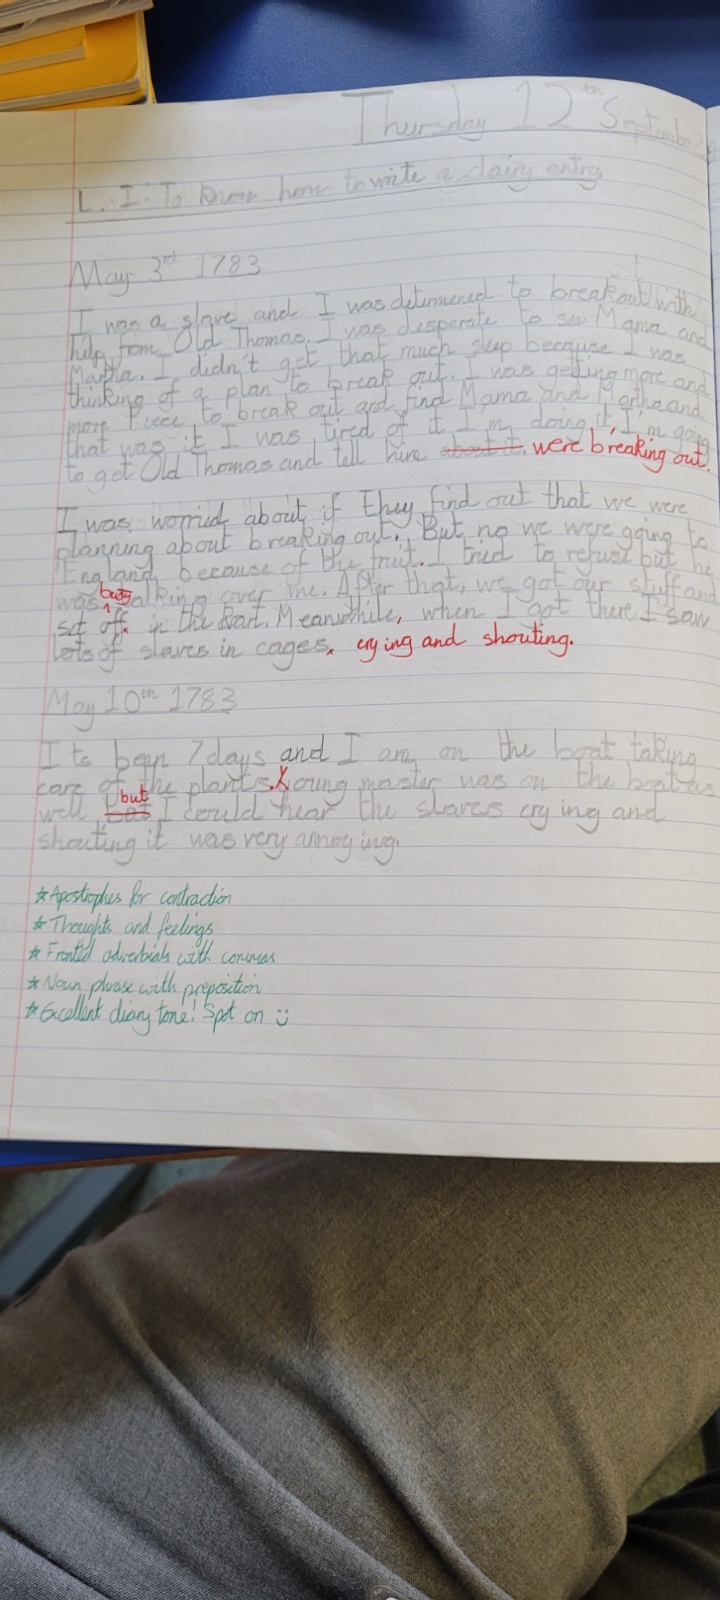 Thursday 12th September 24
L. I: To know how to write a dairy entry
May 3rd 1783
out
I was a slave and I was determened to breakout with
help from Old Thomas. I was desperate to see Mama and
Martha. I didn't got that much sleep because I was
thinking of a plan to break out. I was getting more and
more Piece to break out and find Mama and Martha and
that was it I was tired of it I'm doing it, I'm going
to get Old Thomas and tell him about it. were breaking out.
I was worried about if they find out that we were
planning about breaking out. But no we were going to
England because of the fruit. I tried to refuse but he
was busy talking over me. After that, we got our stuff and
set off in the boat. Meanwhile, when I got there I saw
lots of slaves in cages, crying and shouting.
May 10th 1783
I ts been 7 days and I am on the boat taking
care of the plants. Young master was on the boat as
well but I could hear the slaves crying and
shouting it was very annoying.
* Apostrophes for contraction
* Thoughts and feelings
* Fronted adverbials with commas
* Noun phrase with preposition
* Excellent diary tone! Spot on